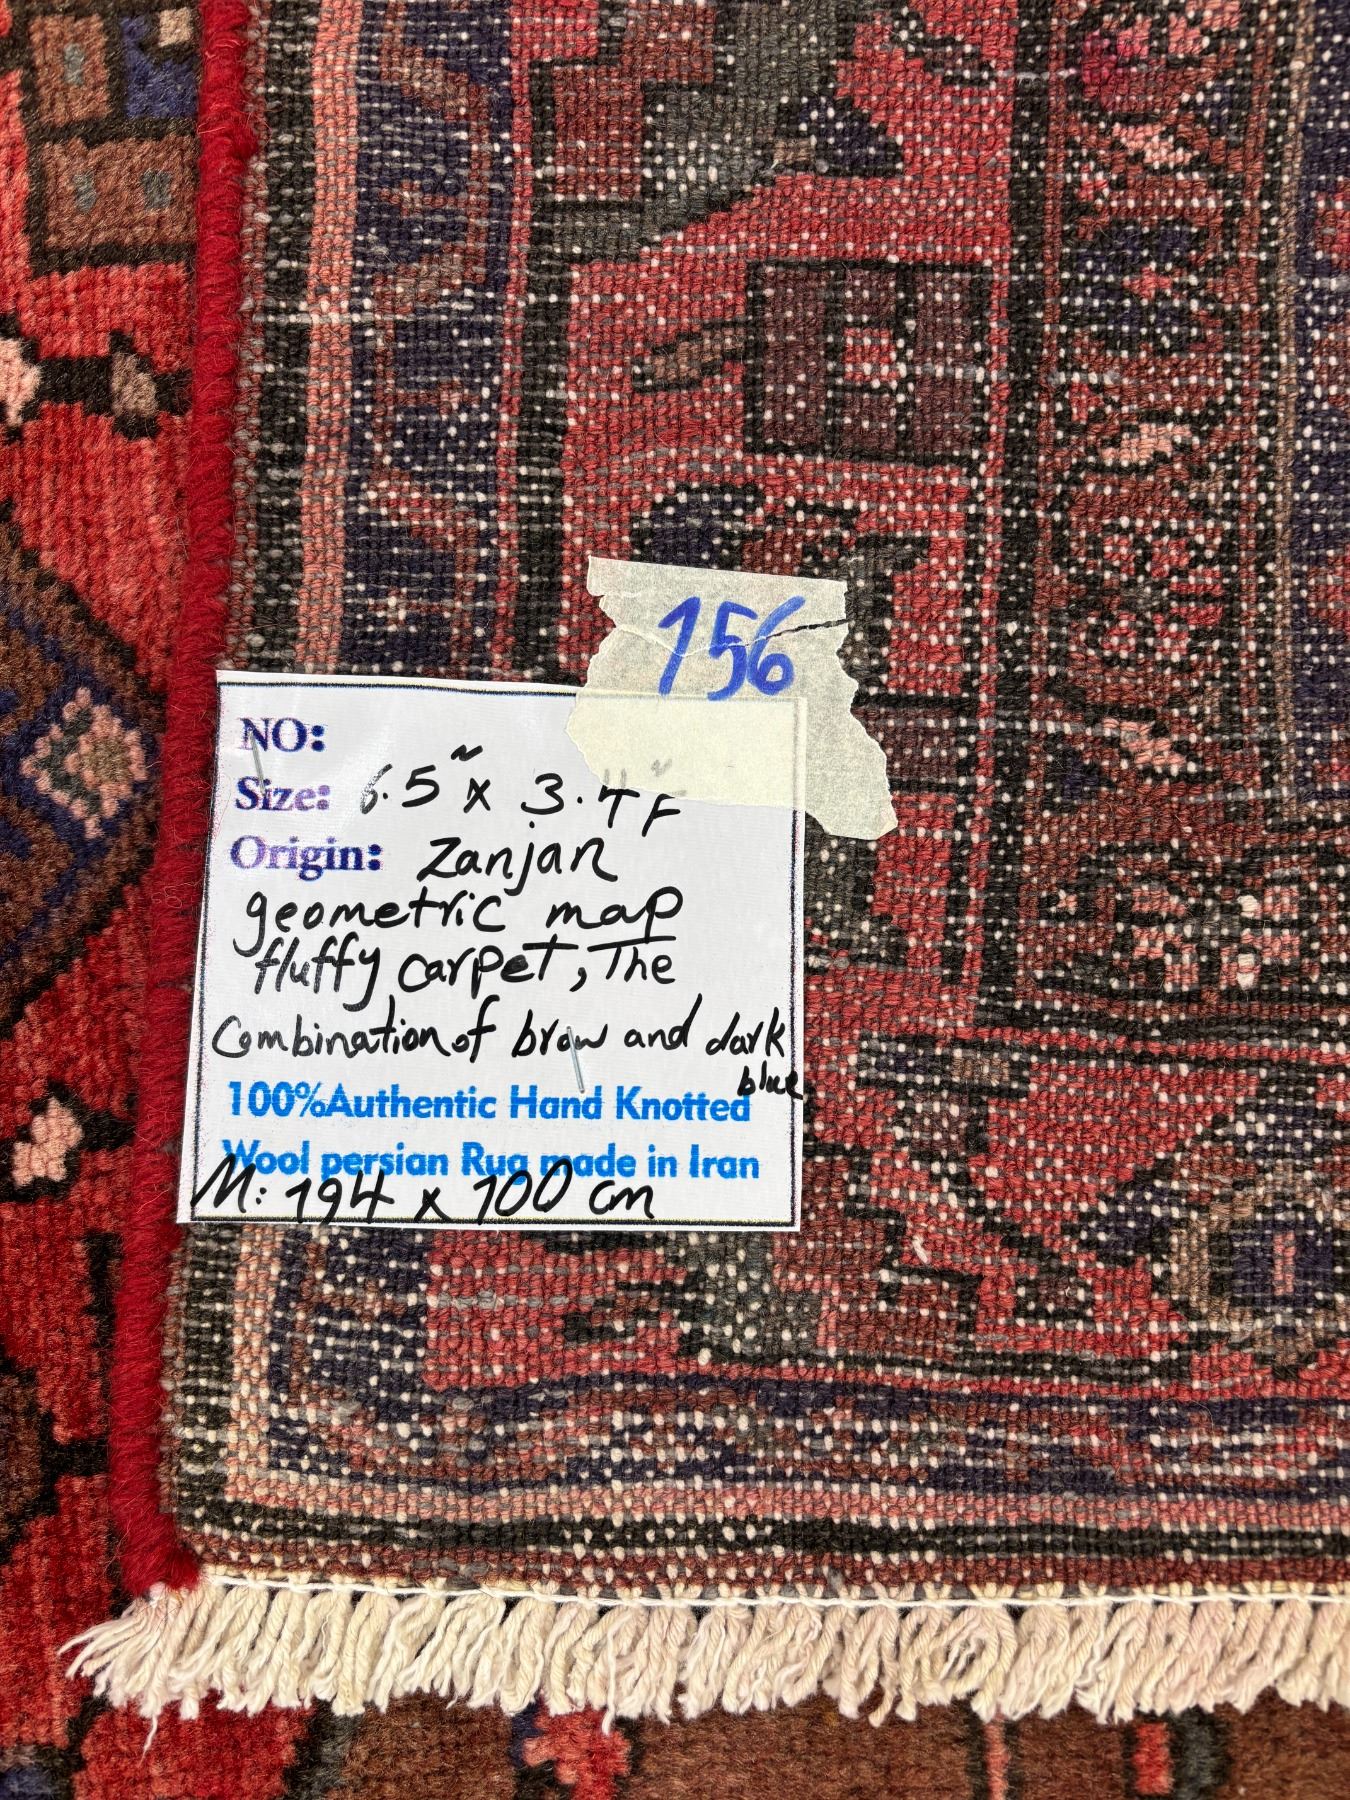 156
NO:
Size: 6.5" x 3.4" F
Origin: Zanjan
geometric map
fluffy carpet, The
Combination of brow and dark
blue
100%Authentic Hand Knotted
Wool persian Rug made in Iran
M: 194 x 100 cm